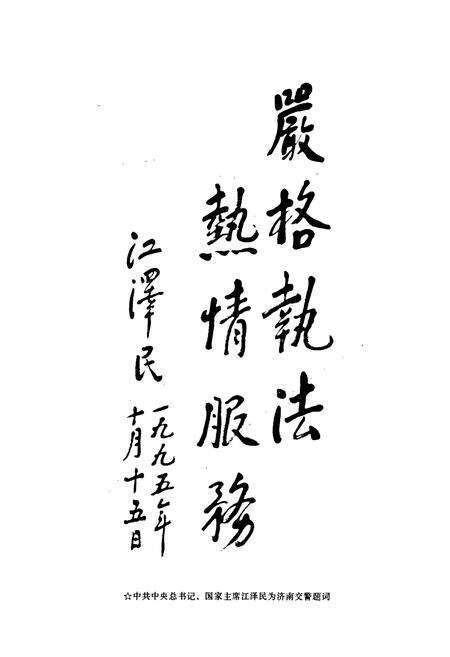 嚴格執法
熱情服務
江澤民
一九九五年
十月十五日
☆中共中央总书记、国家主席江泽民为济南交警题词